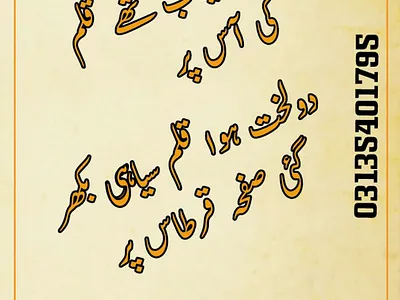 قلم
کی آس پر
دو لخت ہوا قلم سیاہی بکھر
گئی صفحہ قرطاس پر
03135401795